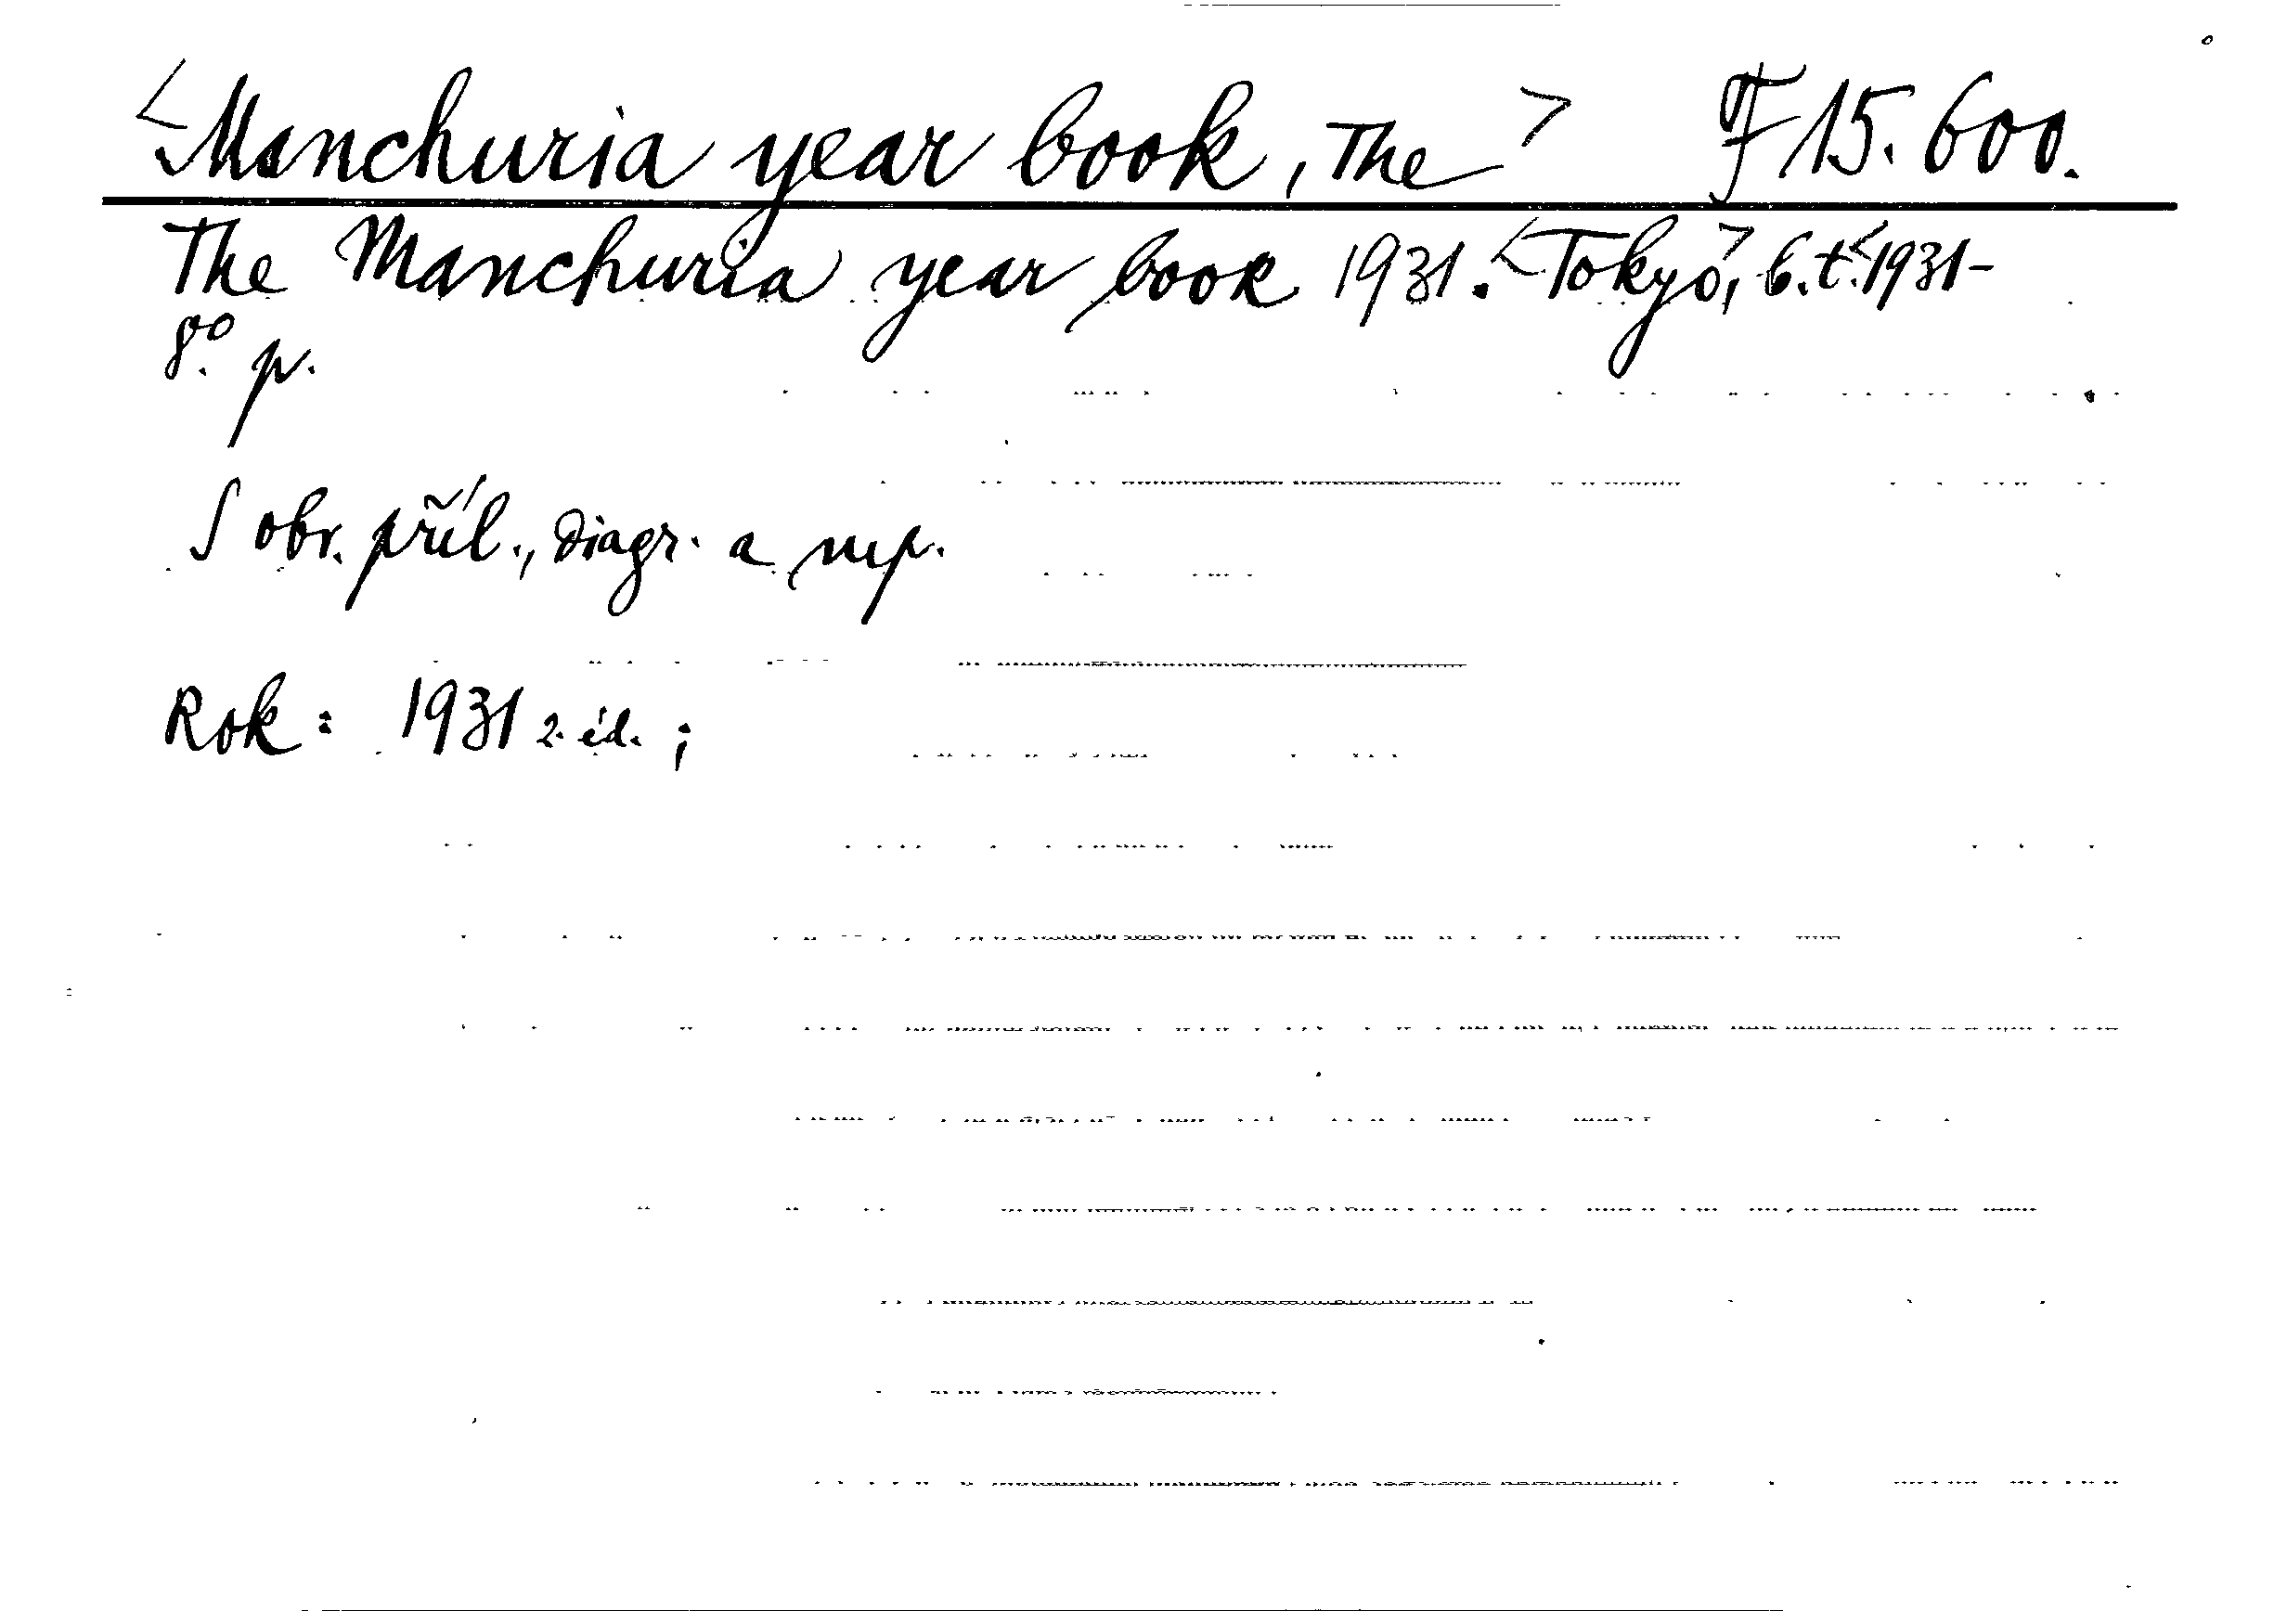 <Manchuria year book, The> F 15.600.
The Manchuria year book 1931. <Tokyó>, b.t. <1931-
8.º p.
S obr. příl., diagr. a map.
Rok: 1931 2. éd. ;